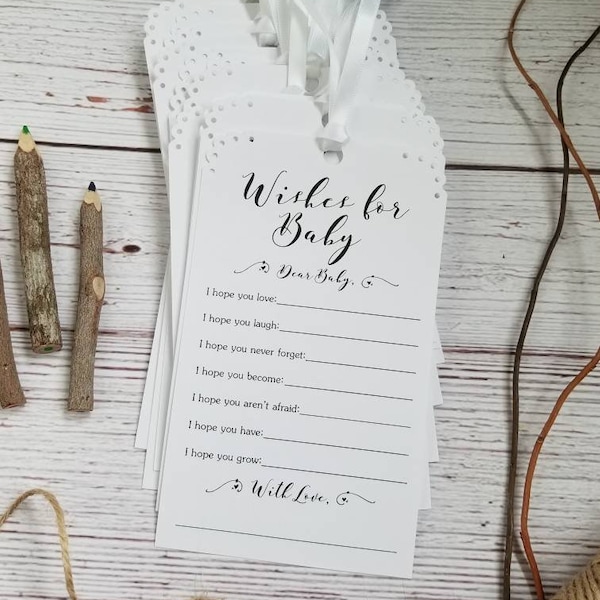 Wishes for
Baby
Dear Baby,
I hope you love:
I hope you laugh:
I hope you never forget:
I hope you become:
I hope you aren't afraid:
I hope you have:
I hope you grow:
With Love,